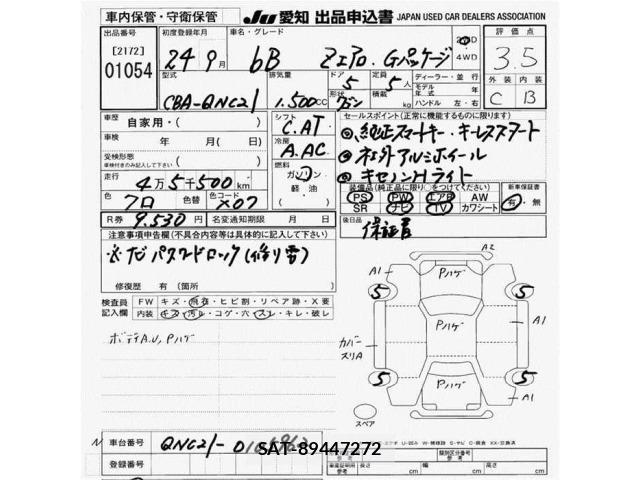 車内保管・守衛保管
JU 愛知 出品申込書 JAPAN USED CAR DEALERS ASSOCIATION
出品番号
[2172]
01054
初度登録年月
24年9月
車名・グレード
bB Zエアロ・Gパッケージ
2WD
・
4WD
評価点
3.5
外装 内装
C B
型式
CBA-QNC21
排気量
1.500cc
ドア
5
形状
ワゴン
定員
5人
積載
kg
ディーラー・並行
モデル年式 年
ハンドル 左・右
車歴
自家用・( )
車検
年 月( 日)
受検形態
(車検付きのみ記入して下さい)
( )
走行
4万5千500km
色
クロ
色替
色コード
X07
R券 9.530円
名変通知期限 月 日
シフト
C.AT
冷房
A.AC
燃料
ガソリン
軽油
( )
セールスポイント(正常に機能するものに限ります)
◎純正スマートキー・キーレススタート
◎社外アルミホイール
◎キセノンHライト
装備品(純正品に限り○をつけてください)
PS PW エアB AW
SR ナビ TV カワシート
新車保証書
有・無
後日品
保証書
注意事項申告欄(不具合内容等は具体的に記入して下さい)
※ナビパスワードロック
修復歴 有(箇所 )
検査員記入欄
FW キズ・飛石・ヒビ割・リペア跡・X要
内装 キズ・汚れ・コゲ・穴・スレ・キレ・破レ
ボディA.U,Pハゲ
A2
A1
Pハゲ
5
5
A1
Pハゲ
カバー
スリA
5
Pハゲ
5
A1
スペア
車台番号
QNC21-
SAT-89447272
登録番号
長さ cm 幅 cm 高さ cm